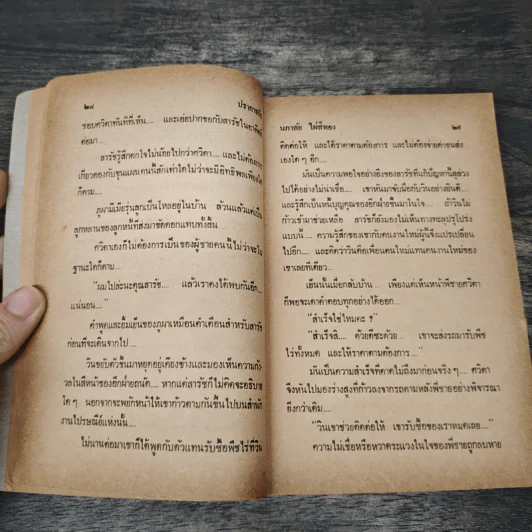 ๒๘
ปราการรัก
ขอบศวิตาทันทีที่เห็น.... และเอ่ยปากขอกับสารัชในอาทิตย์
ต่อมา...
สารัชรู้สึกตกใจไม่น้อยไปกว่าศวิตา.... และไม่ต้องการ
เกี่ยวดองกับขุนแผนคนนี้สักเท่าใดไม่ว่าจะมีอิทธิพลเพียงใด
ก็ตาม....
ภูผามีเมียรุ่นลูกเป็นโหลอยู่ในบ้าน ล้วนแล้วแต่เป็น
ลูกหลานของลูกหนี้ที่ส่งมาขัดดอกแทบทั้งสิ้น
ศวิตาเองก็ไม่ต้องการเป็นของผู้ชายคนนี้ไม่ว่าจะใน
ฐานะใดก็ตาม....
"ผมไปละนะคุณสารัช.... แล้วเราคงได้พบกันอีก....
แน่นอน...."
คำพูดและยิ้มเย็นของภูผาเหมือนคำเตือนสำหรับสารัช
ก่อนที่จะเดินจากไป....
วินขยับตัวขึ้นมาหยุดอยู่เคียงข้างและมองเห็นความกัง
วลในสีหน้าของอีกฝ่ายถนัด.... หากแต่สารัชก็ไม่คิดจะอธิบาย
ใด ๆ นอกจากจะพยักหน้าให้เขาก้าวตามกันขึ้นไปบนสำนัก
งานไปรษณีย์แห่งนั้น....
ไม่นานต่อมาเขาก็ได้พูดกับตัวแทนรับซื้อพืชไร่ที่วิน
นกาลัย ไผ่สีทอง
๒๙
ติดต่อให้ และได้ราคาตามต้องการ และไม่ต้องจ่ายค่าขนส่ง
เองใด ๆ อีก....
มันเป็นความพอใจอย่างยิ่งของสารัชที่แก้ปัญหานี้ลุล่วง
ไปได้อย่างไม่น่าเชื่อ.... เขาหันมาจับมือกับวินอย่างยินดี....
และรู้สึกเป็นหนี้บุญคุณของอีกฝ่ายขึ้นมาในใจ.... ถ้าวินไม่
ก้าวเข้ามาช่วยเหลือ สารัชก็ยังมองไม่เห็นทางทะลุปรุโปร่ง
แบบนี้.... ความรู้สึกของเขากับคนงานใหม่ผู้นี้จึงแปรเปลี่ยน
ไปอีก.... และคิดว่าวินคือเพื่อนคนใหม่แทนคนงานใหม่ของ
เขาเลยทีเดียว...
เย็นนั้นเมื่อกลับบ้าน.... เพียงแค่เห็นหน้าพี่ชายศวิตา
ก็พอจะเดาคำตอบทุกอย่างได้ออก....
"สำเร็จใช่ไหมคะ ?"
"สำเร็จสิ.... ด้วยดีซะด้วย.... เขาจะส่งรถมารับพืช
ไร่ทั้งหมด และให้ราคาตามต้องการ...."
มันเป็นความสำเร็จที่คาดไม่ถึงมาก่อนจริง ๆ.... ศวิตา
จึงหันไปมองร่างสูงที่ก้าวลงจากรถตามหลังพี่ชายอย่างพิจารณา
ยิ่งกว่าเดิม....
"วินเขาช่วยติดต่อให้ เขารับซื้อของเราหมดเลย...."
ความไม่เชื่อหรือหวาดระแวงในใจของพี่ชายถูกลบหาย